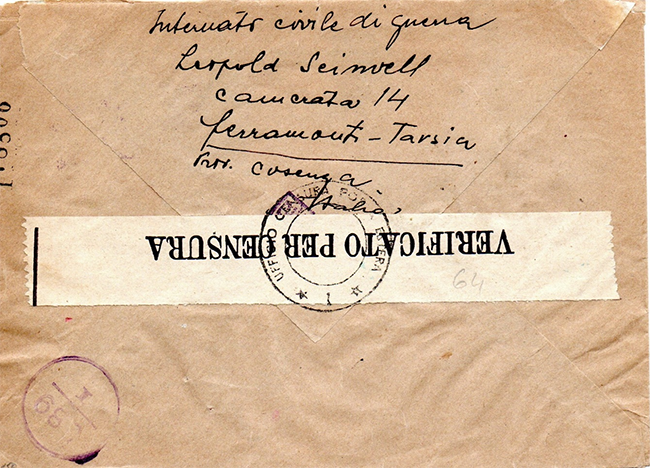 Internato civile di guerra
Leopold Seinvell
camerata 14
Ferramonti-Tarsia
Prov. cosenza -
Italia
VERIFICATO PER CENSURA
UFFICIO CENSURA POSTA ESTERA
1
64